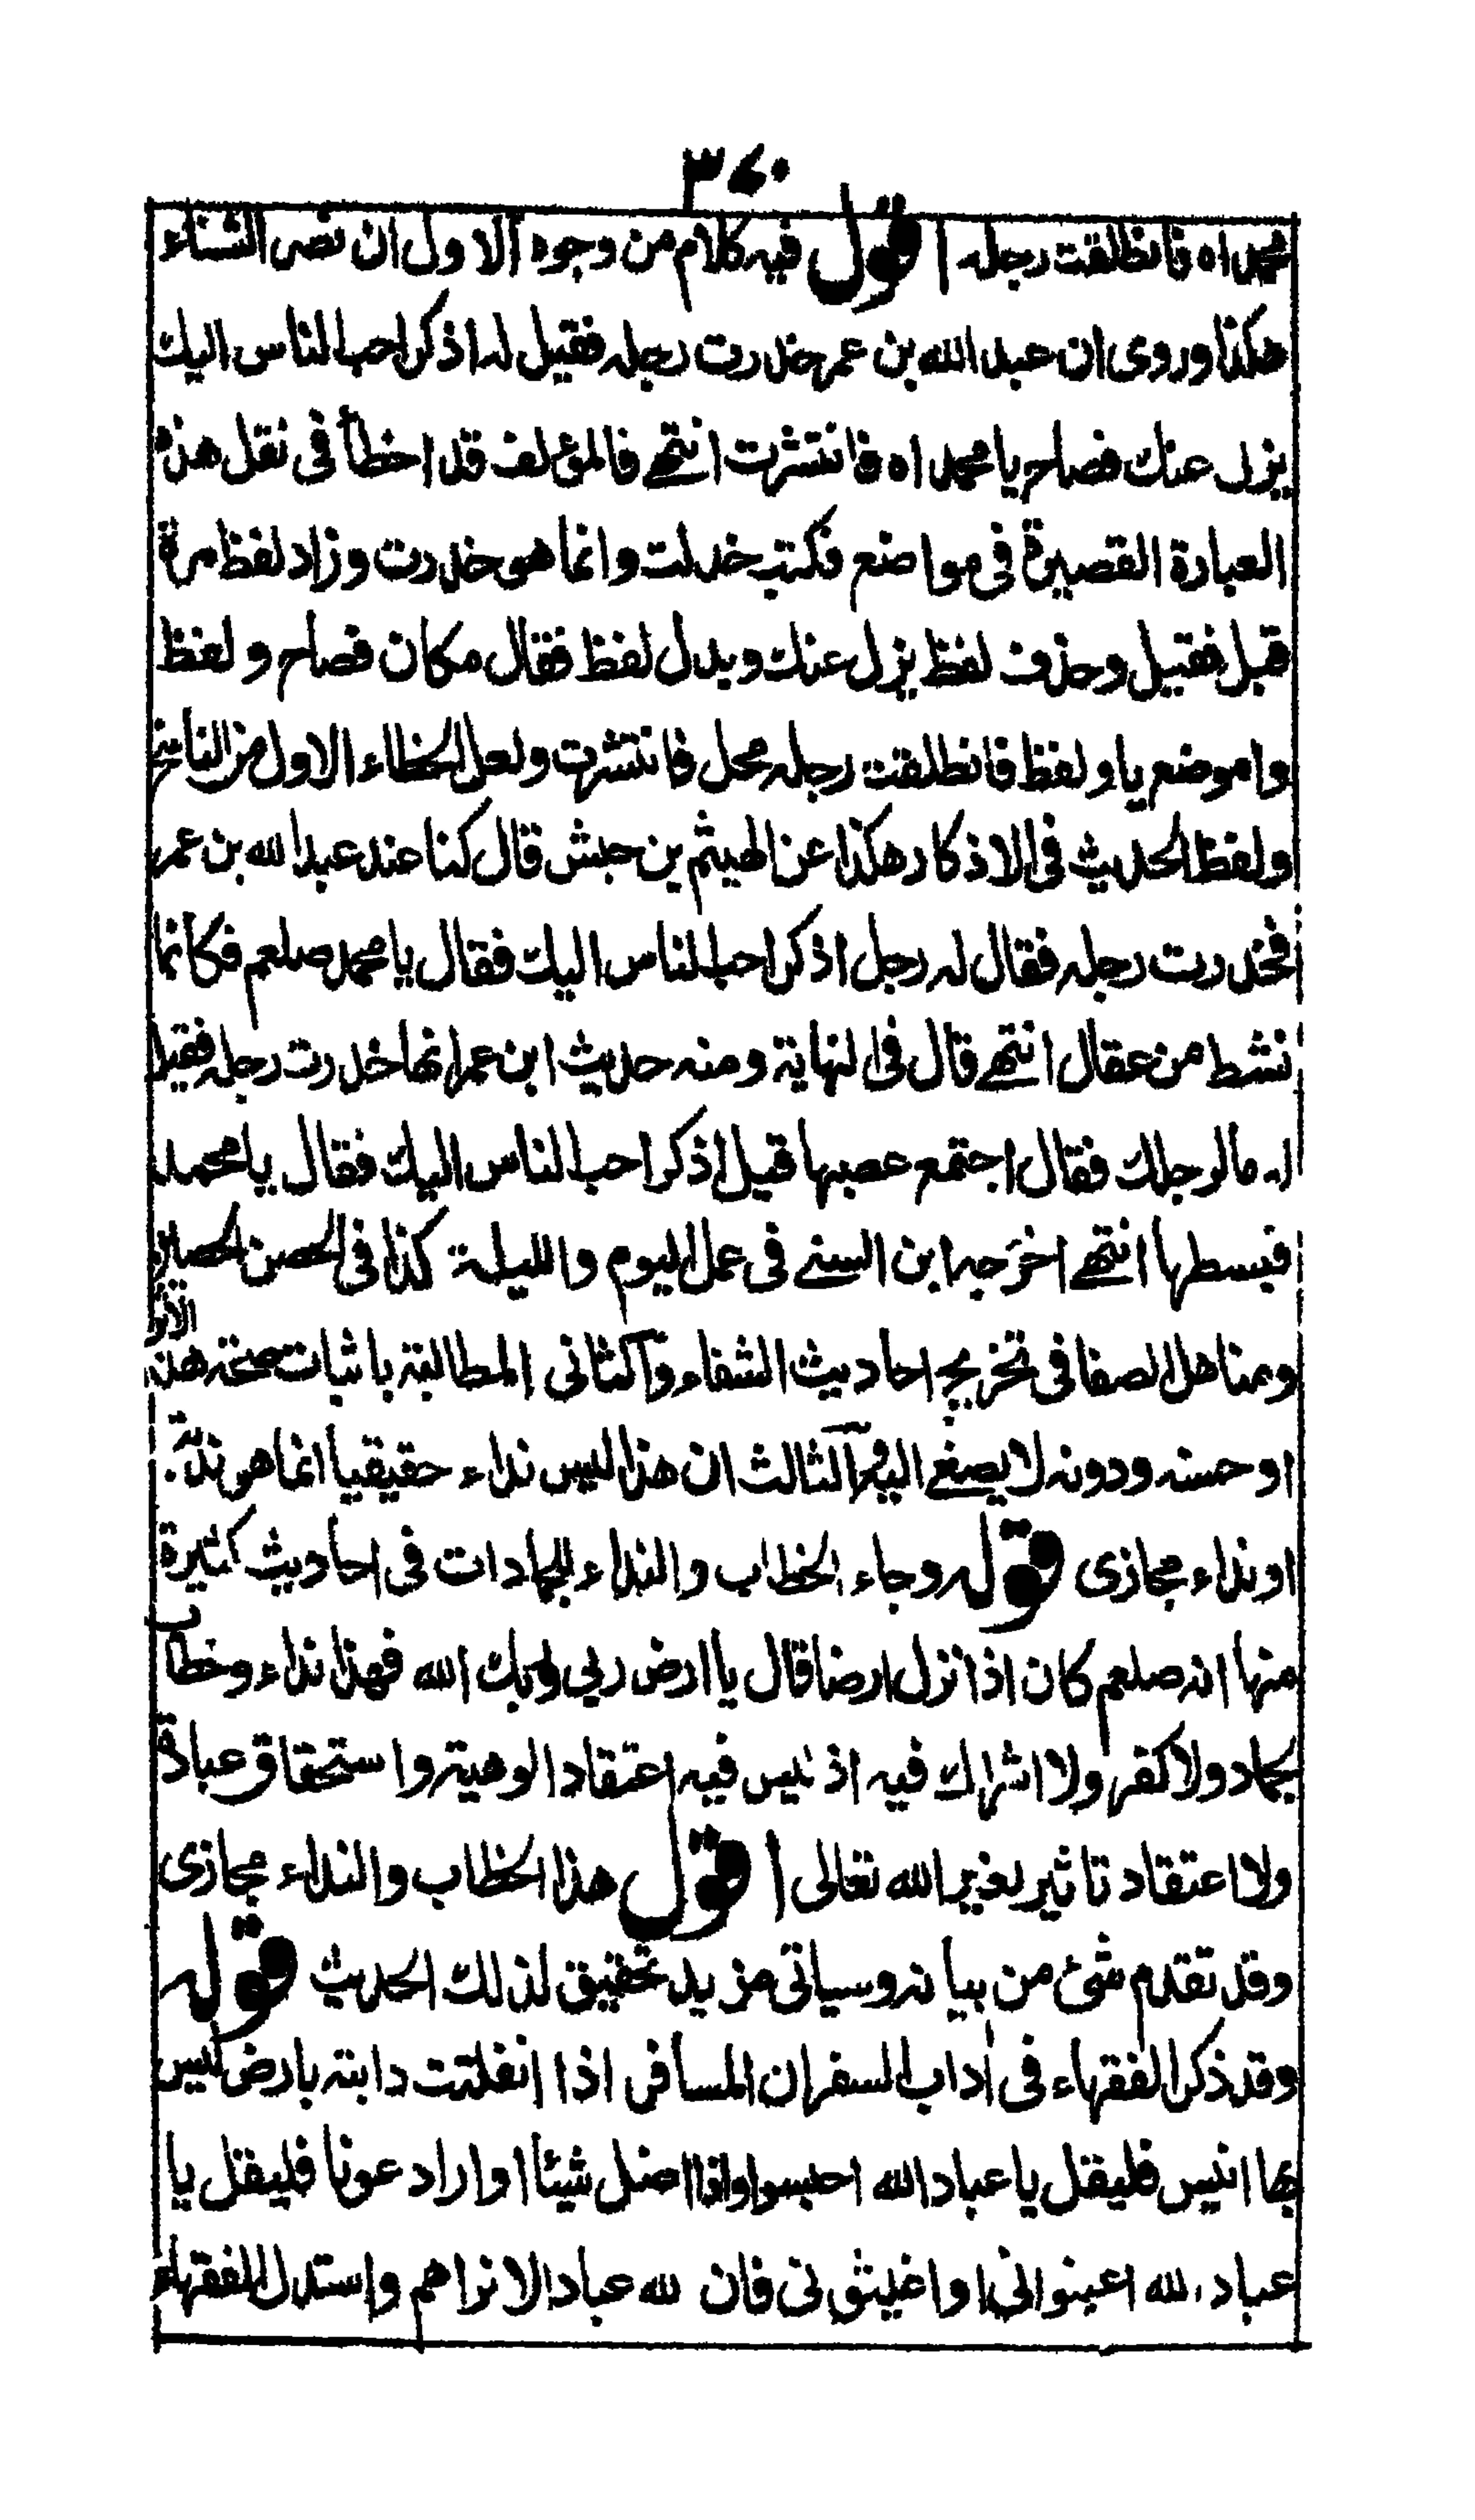 ٣٧٠
محمداه فانطلقت رجله اقول فيه كلام من وجوه الاول ان نص الشفاء
هكذا وروى ان عبد الله بن عمر خدرت رجله فقيل له اذكر احب الناس اليك
يزل عنك فصاح يا محمداه فانتشرت انتهى فالمؤلف قد اخطأ فى نقل هذه
العبارة القصيرة فى مواضع فكتب خدلت وانما هو خدرت وزاد لفظ مرة
قبل فقيل وحذف لفظ يزل عنك وبدل لفظ فقال مكان فصاح ولفظ
وا موضع يا ولفظ فانطلقت رجله محل فانتشرت ولعل الخطاء الاول من الناسخ
ولفظ الحديث فى الاذكار هكذا عن الهيثم بن حبش قال كنا عند عبد الله بن عمر
فخدرت رجله فقال له رجل اذكر احب الناس اليك فقال يا محمد صلعم فكانما
نشط من عقال انتهى قال فى النهاية ومنه حديث ابن عمر انها خدرت رجله فقيل
له ما لرجلك فقال اجتمع عصبها قيل اذكر احب الناس اليك فقال يا محمد
فبسطها انتهى اخرجه ابن السنى فى عمل اليوم والليلة كذا فى الحصن الحصين
ومناهل الصفا فى تخريج احاديث الشفاء والثانى المطالبة باثبات صحة هذا الاثر
او حسنه ودونه لا يصغى اليه والثالث ان هذا ليس نداء حقيقيا انما هو ندبة
او نداء مجازى قوله وجاء الخطاب والنداء للجمادات فى احاديث كثيرة
منها انه صلعم كان اذا نزل ارضا قال يا ارض ربى وربك الله فهذا نداء وخطاب
لجماد ولا كفر ولا اشراك فيه اذ ليس فيه اعتقاد الوهية واستحقاق عبادة
ولا اعتقاد تاثير لغير الله تعالى اقول هذا الخطاب والنداء مجازى
وقد تقدم شئ من بيانه وسياتى مزيد تحقيق لذلك الحديث قوله
وقد ذكر الفقهاء فى اداب السفر ان المسافر اذا انفلتت دابته بارض ليس
بها انيس فليقل يا عباد الله احبسوا واذا اضل شيئا او اراد عونا فليقل يا
عباد الله اعينوانى او اغيثونى فان لله عبادا لا نراهم واستدل الفقهاء